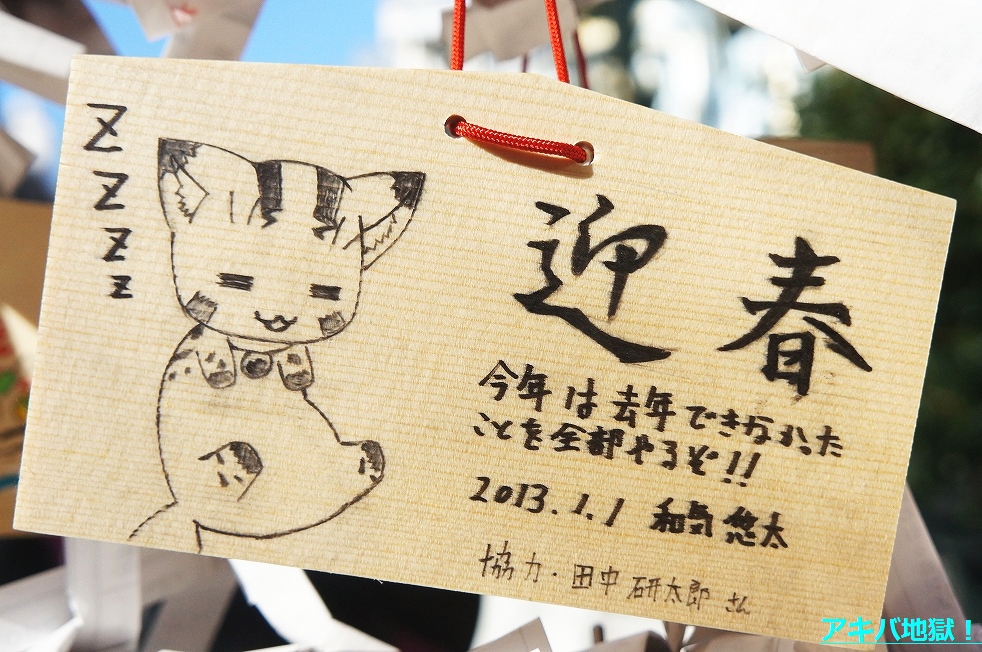 Z
Z
Z
Z
迎春
今年は去年できなかった
ことを全部やるぞ!!
2013.1.1 和気悠太
協力・田中研太郎さん
アキバ地獄!